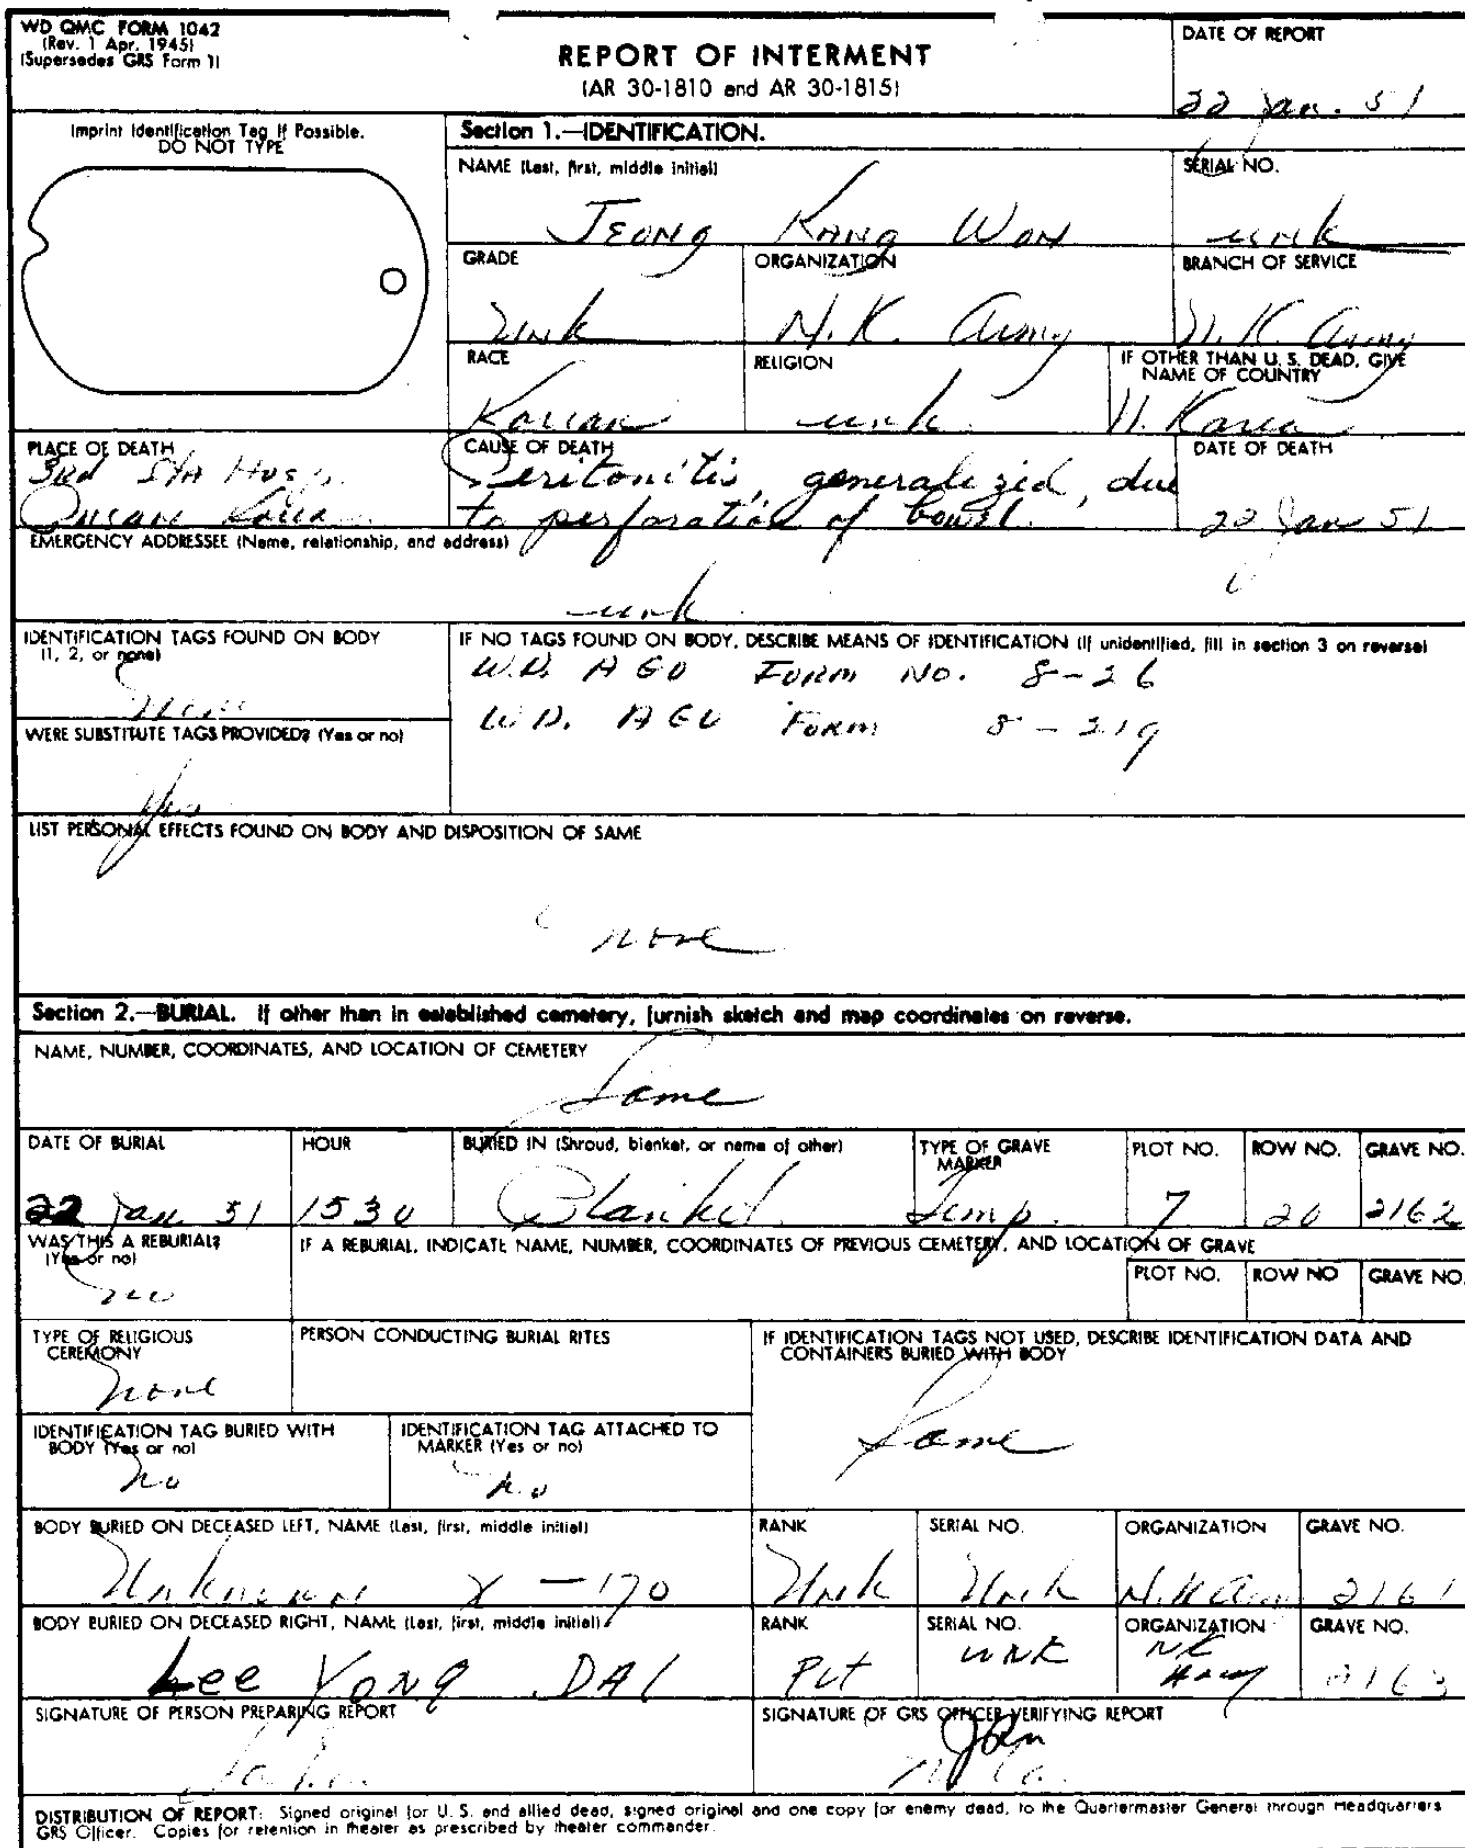 WD QMC FORM 1042
(Rev. 1 Apr. 1945)
(Supersedes GRS Form 1)
REPORT OF INTERMENT
(AR 30-1810 and AR 30-1815)
DATE OF REPORT
22 Jan. 51
Imprint Identification Tag If Possible.
DO NOT TYPE
Section 1.—IDENTIFICATION.
NAME (Last, first, middle initial)
JEONG KANG WON
SERIAL NO.
unk
GRADE
Unk
ORGANIZATION
N.K. Army
BRANCH OF SERVICE
N.K. Army
RACE
Korean
RELIGION
unk.
IF OTHER THAN U. S. DEAD, GIVE
NAME OF COUNTRY
N. Korea
PLACE OF DEATH
3rd Sta Hosp.
Pusan Korea
CAUSE OF DEATH
Peritonitis, generalized, due
to perforation of bowel.
DATE OF DEATH
20 Jan 51
EMERGENCY ADDRESSEE (Name, relationship, and address)
unk.
IDENTIFICATION TAGS FOUND ON BODY
(1, 2, or none)
None
IF NO TAGS FOUND ON BODY, DESCRIBE MEANS OF IDENTIFICATION (If unidentified, fill in section 3 on reverse)
W.D. AGO FORM NO. 8-26
W.D. AGO FORM 8-219
WERE SUBSTITUTE TAGS PROVIDED? (Yes or no)
Yes
LIST PERSONAL EFFECTS FOUND ON BODY AND DISPOSITION OF SAME
none
Section 2.—BURIAL. If other than in established cemetery, furnish sketch and map coordinates on reverse.
NAME, NUMBER, COORDINATES, AND LOCATION OF CEMETERY
Same
DATE OF BURIAL
22 Jan 51
HOUR
1530
BURIED IN (Shroud, blanket, or name of other)
Blanket
TYPE OF GRAVE
MARKER
Temp.
PLOT NO.
7
ROW NO.
20
GRAVE NO.
2162
WAS THIS A REBURIAL?
(Yes or no)
no
IF A REBURIAL, INDICATE NAME, NUMBER, COORDINATES OF PREVIOUS CEMETERY, AND LOCATION OF GRAVE
PLOT NO.
ROW NO
GRAVE NO.
TYPE OF RELIGIOUS
CEREMONY
none
PERSON CONDUCTING BURIAL RITES
IF IDENTIFICATION TAGS NOT USED, DESCRIBE IDENTIFICATION DATA AND
CONTAINERS BURIED WITH BODY
Same
IDENTIFICATION TAG BURIED WITH
BODY (Yes or no)
no
IDENTIFICATION TAG ATTACHED TO
MARKER (Yes or no)
no
BODY BURIED ON DECEASED LEFT, NAME (Last, first, middle initial)
Unknown X-170
RANK
Unk
SERIAL NO.
Unk
ORGANIZATION
N.K. Army
GRAVE NO.
2161
BODY BURIED ON DECEASED RIGHT, NAME (Last, first, middle initial)
Lee Yong DAI
RANK
Pvt
SERIAL NO.
UNK
ORGANIZATION
NK
Army
GRAVE NO.
2163
SIGNATURE OF PERSON PREPARING REPORT
SIGNATURE OF GRS OFFICER VERIFYING REPORT
DISTRIBUTION OF REPORT: Signed original for U. S. and allied dead, signed original and one copy for enemy dead, to the Quartermaster General through Headquarters
GRS Officer. Copies for retention in theater as prescribed by theater commander.